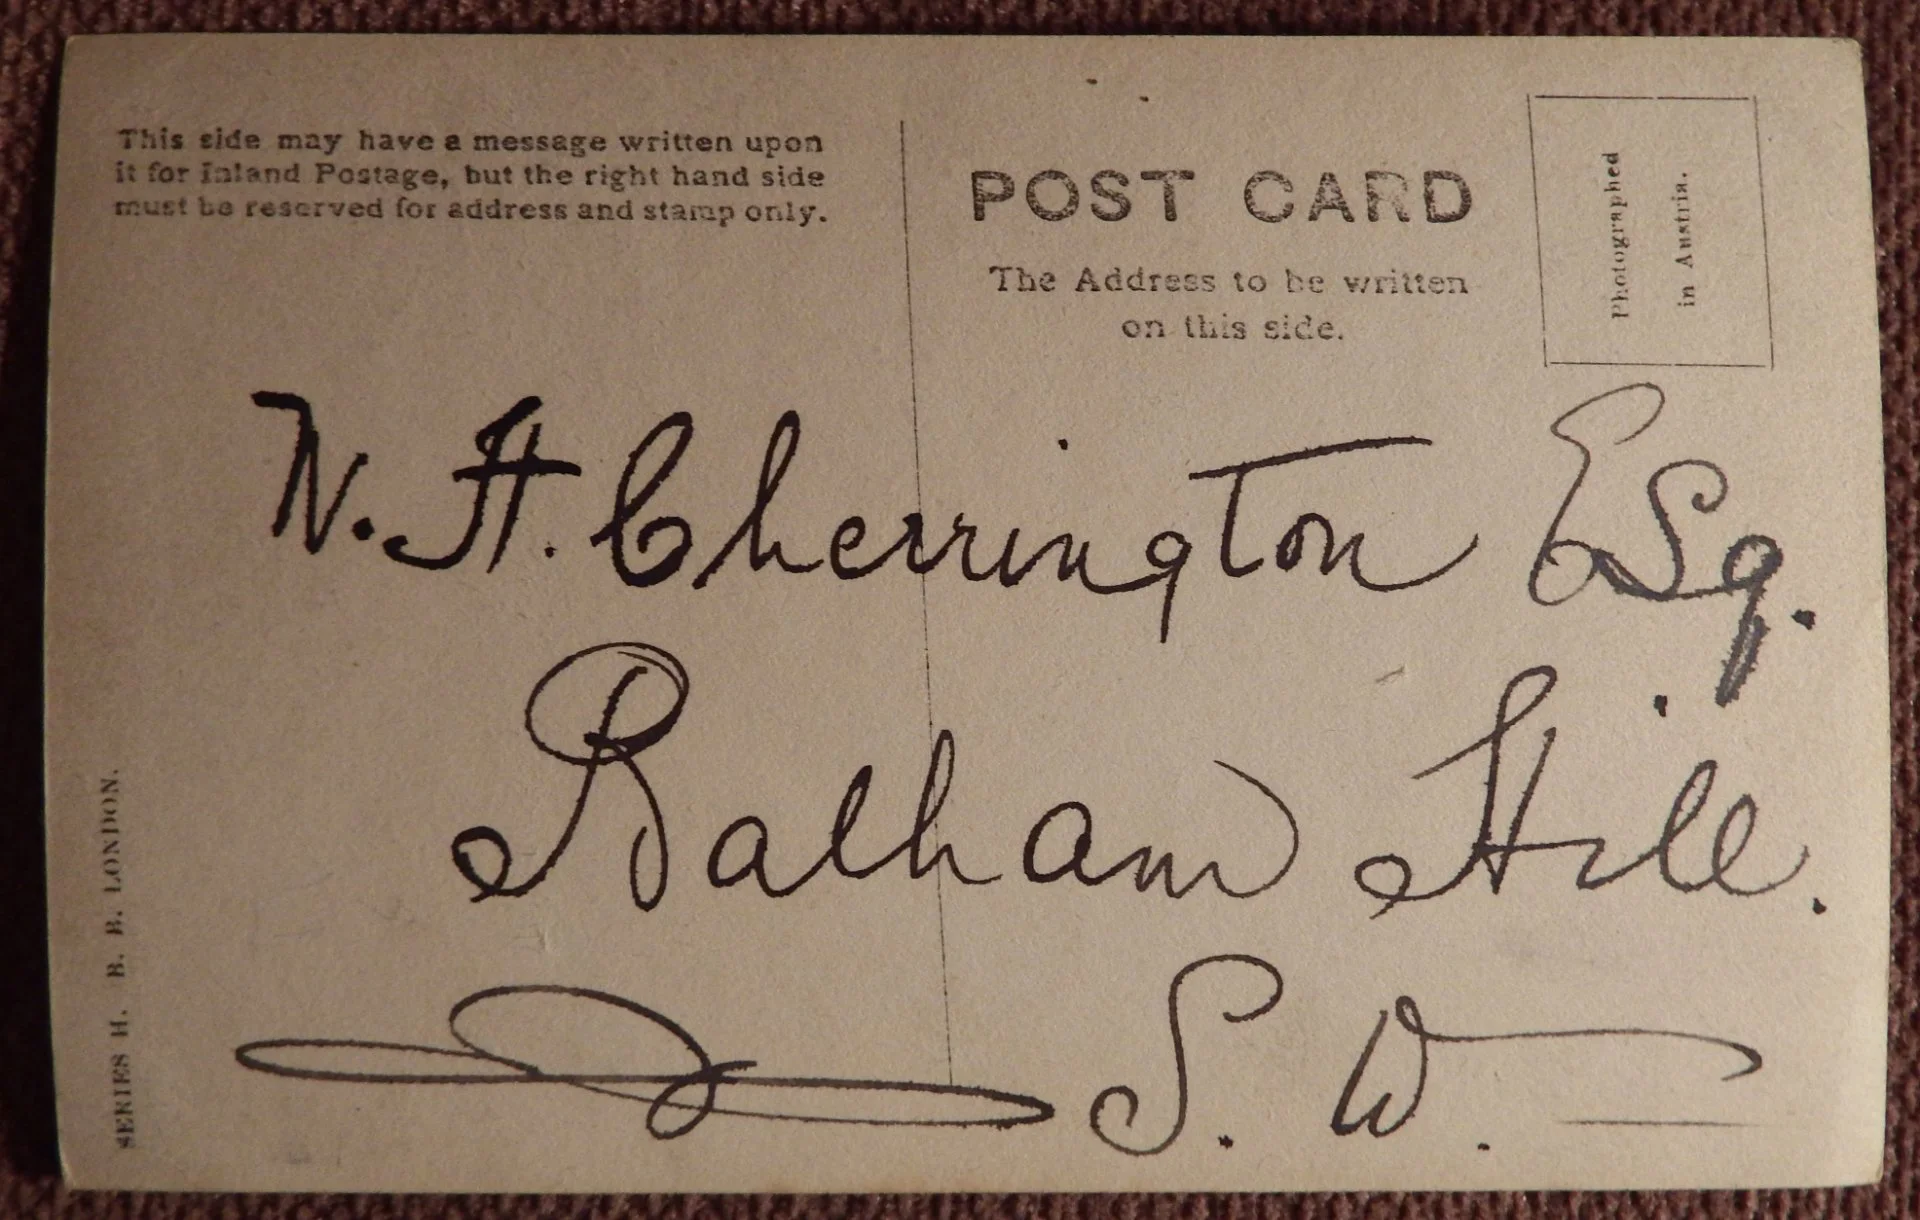 This side may have a message written upon
it for Inland Postage, but the right hand side
must be reserved for address and stamp only.
POST CARD
The Address to be written
on this side.
Photographed
in Austria.
W. H. Cherrington Esq.
Balham Hill.
S. W.
SERIES H. B. B. LONDON.